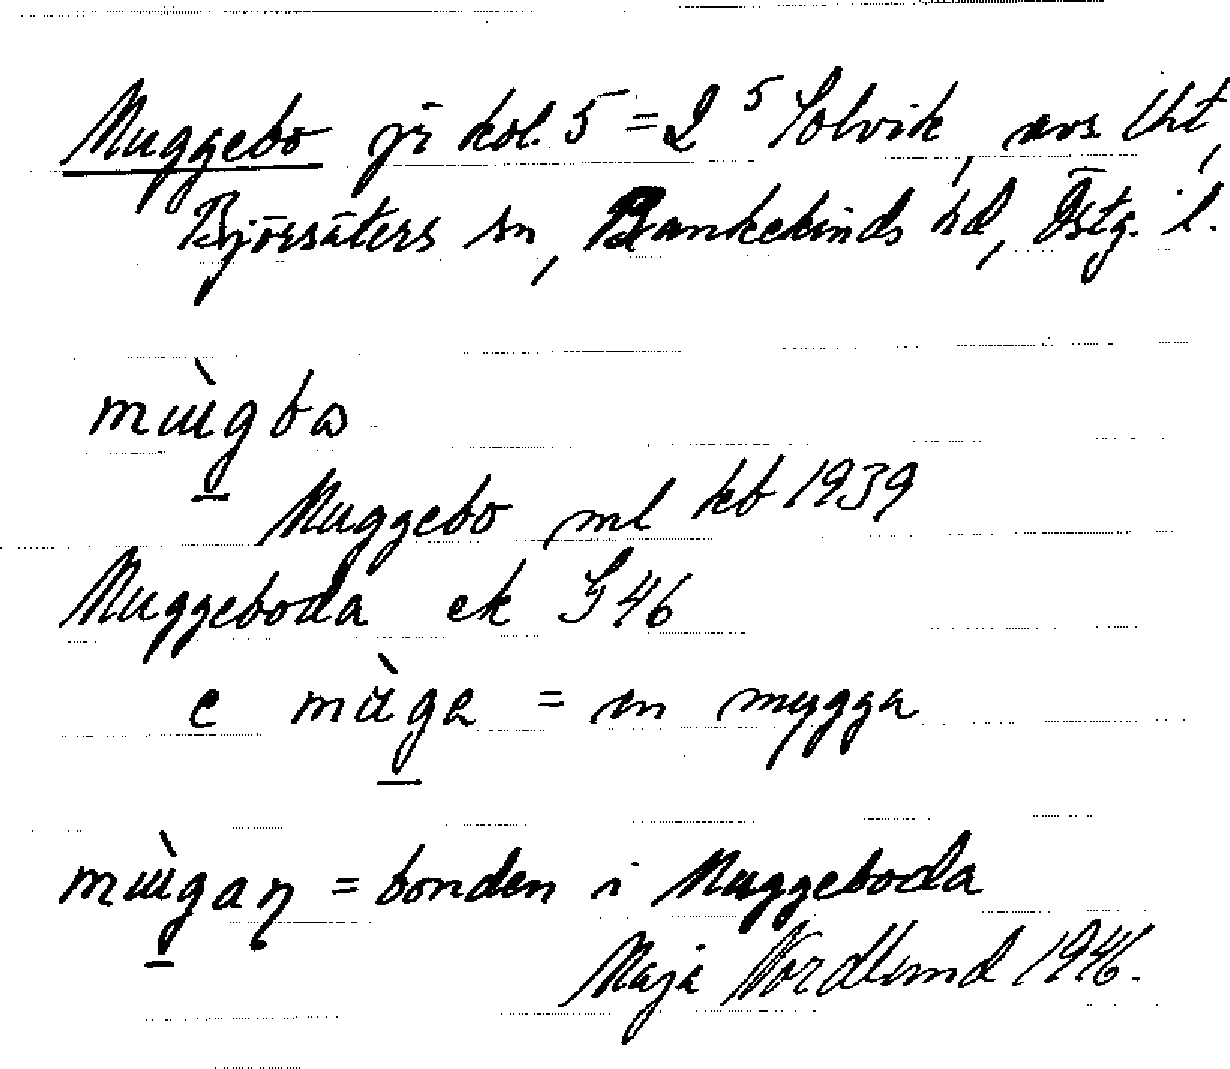 Muggebo på kol. 5 = 2 5 Solvik, avs. lht,
Björsäters sn, Bankekinds hd, Östg. l.
mùgbo
Muggebo ml kb 1939
Muggeboda ek G 46
e mùga = en mygga
mùgaŋ = bonden i Muggeboda
Maja Nordlund 1946.